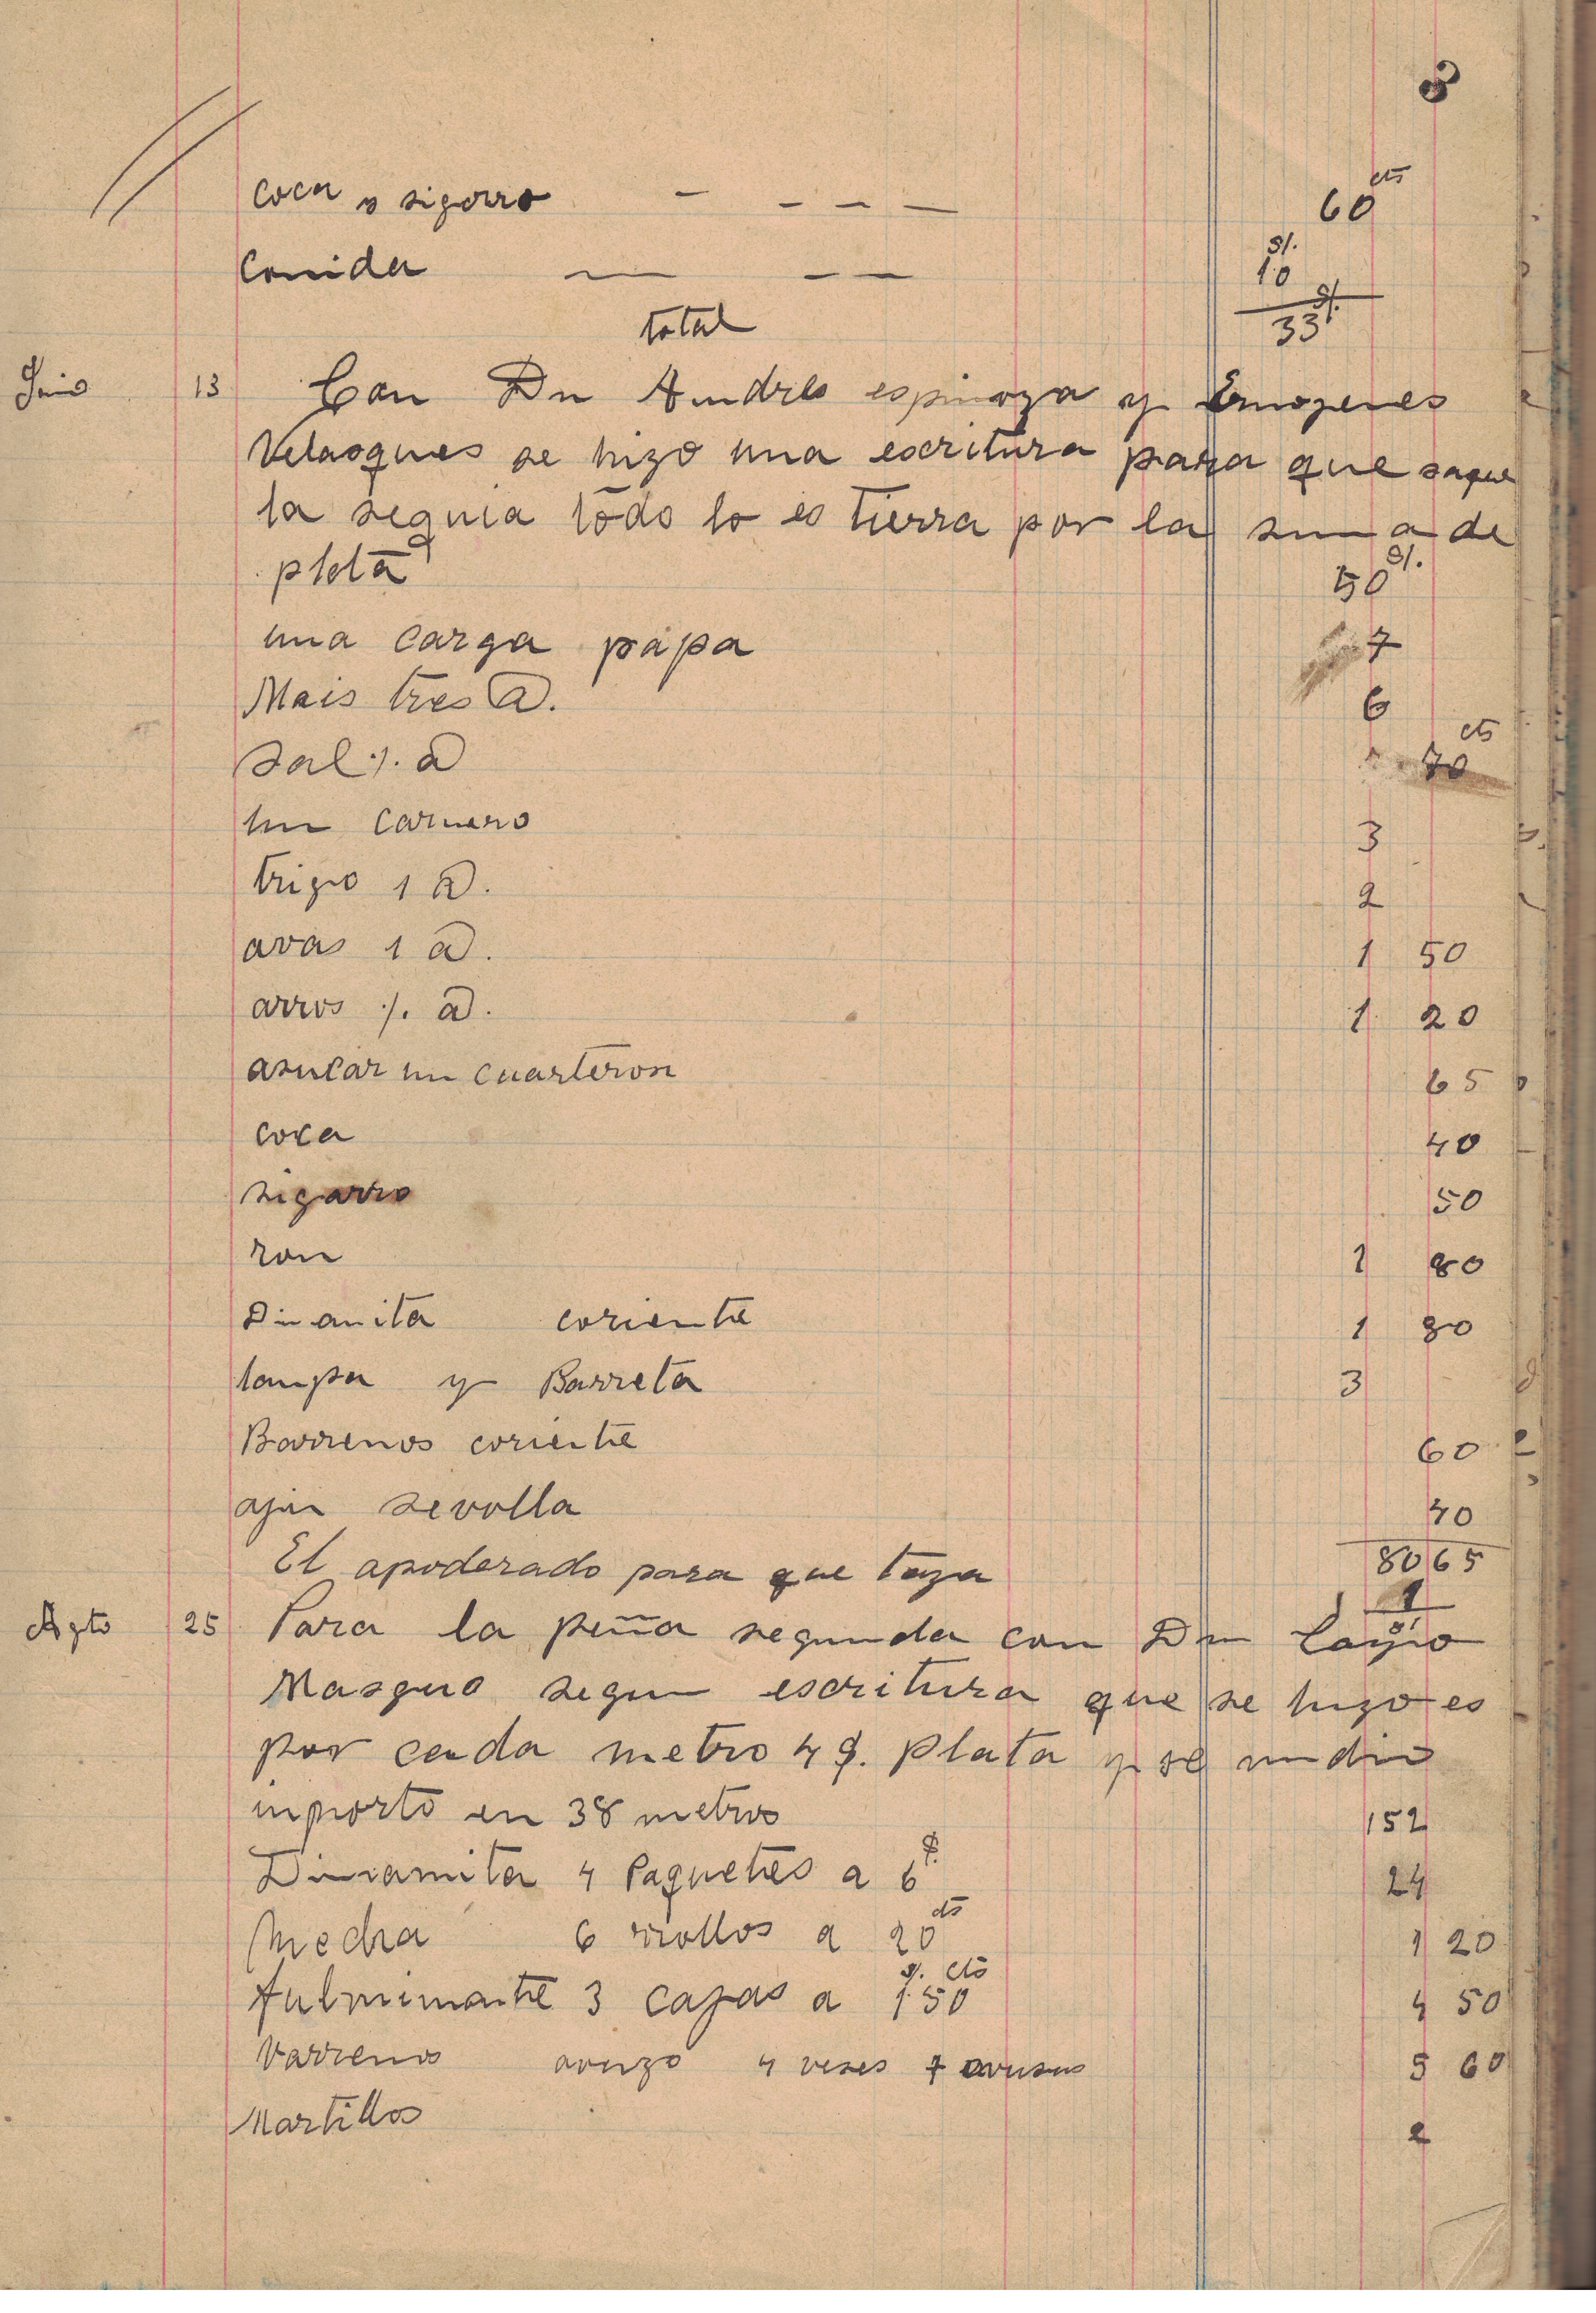 8
coca y sigarro - - - - 60 cts
Comida - - - S/. 10
total 33 S/.
Junio 13 Con Dn Andres espinoza y Ermogenes
Velasques se hizo una escritura para que saque
la sequia todo lo es tierra por la suma de
plata 50 S/.
una carga papa 7
Mais tres @. 6
Sal ·/. @ 70 cts
un carnero 3
trigo 1 @. 2
avas 1 @. 1 50
arros ·/. @. 1 20
asucar un cuarteron 65
coca 40
sigarro 50
ron 1 80
Dinamita coriente 1 80
lampa y Barreta 3
Barrenos coriente 60
aji sevolla 40
80 65
El apoderado para que taza 1
Agto 25 Para la peña segunda con Dn
Masguo segun escritura que se hizo es
por cada metro 4 $. plata y se midio
inporto en 38 metros 152
Dinamita 4 Paquetes a 6 $. 24
Mecha 6 rrollos a 20 cts 1 20
fulminante 3 cajas a 1.50 $. cts 4 50
Varreno 4 veses 5 60
Martillos 2